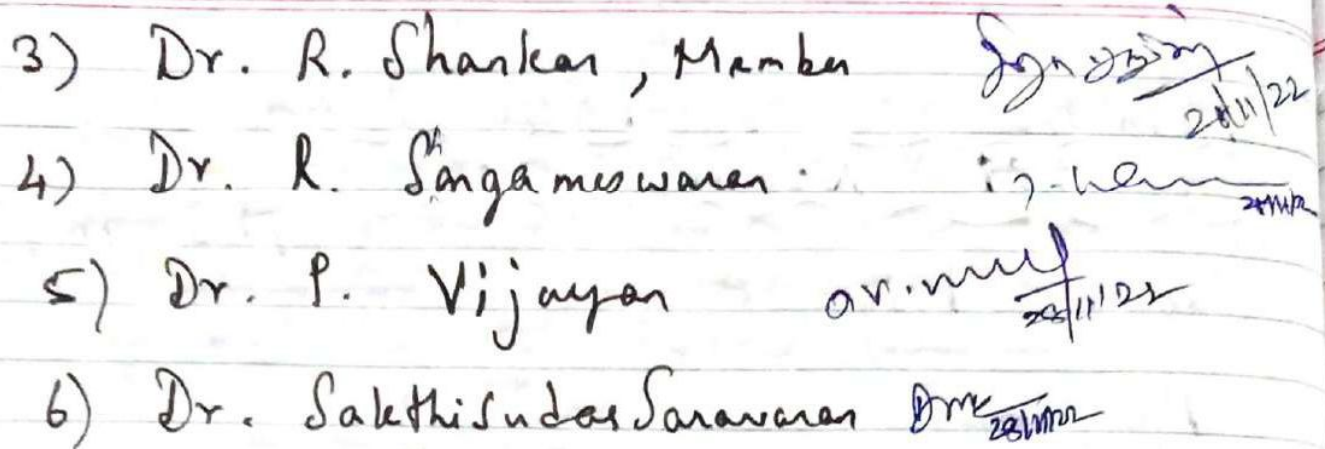 3) Dr. R. Shankar, Member 28/11/22
4) Dr. R. Sangameswaran. 28/11/22
5) Dr. P. Vijayan 28/11/22
6) Dr. Sakthisudar Saravanan 28/11/22